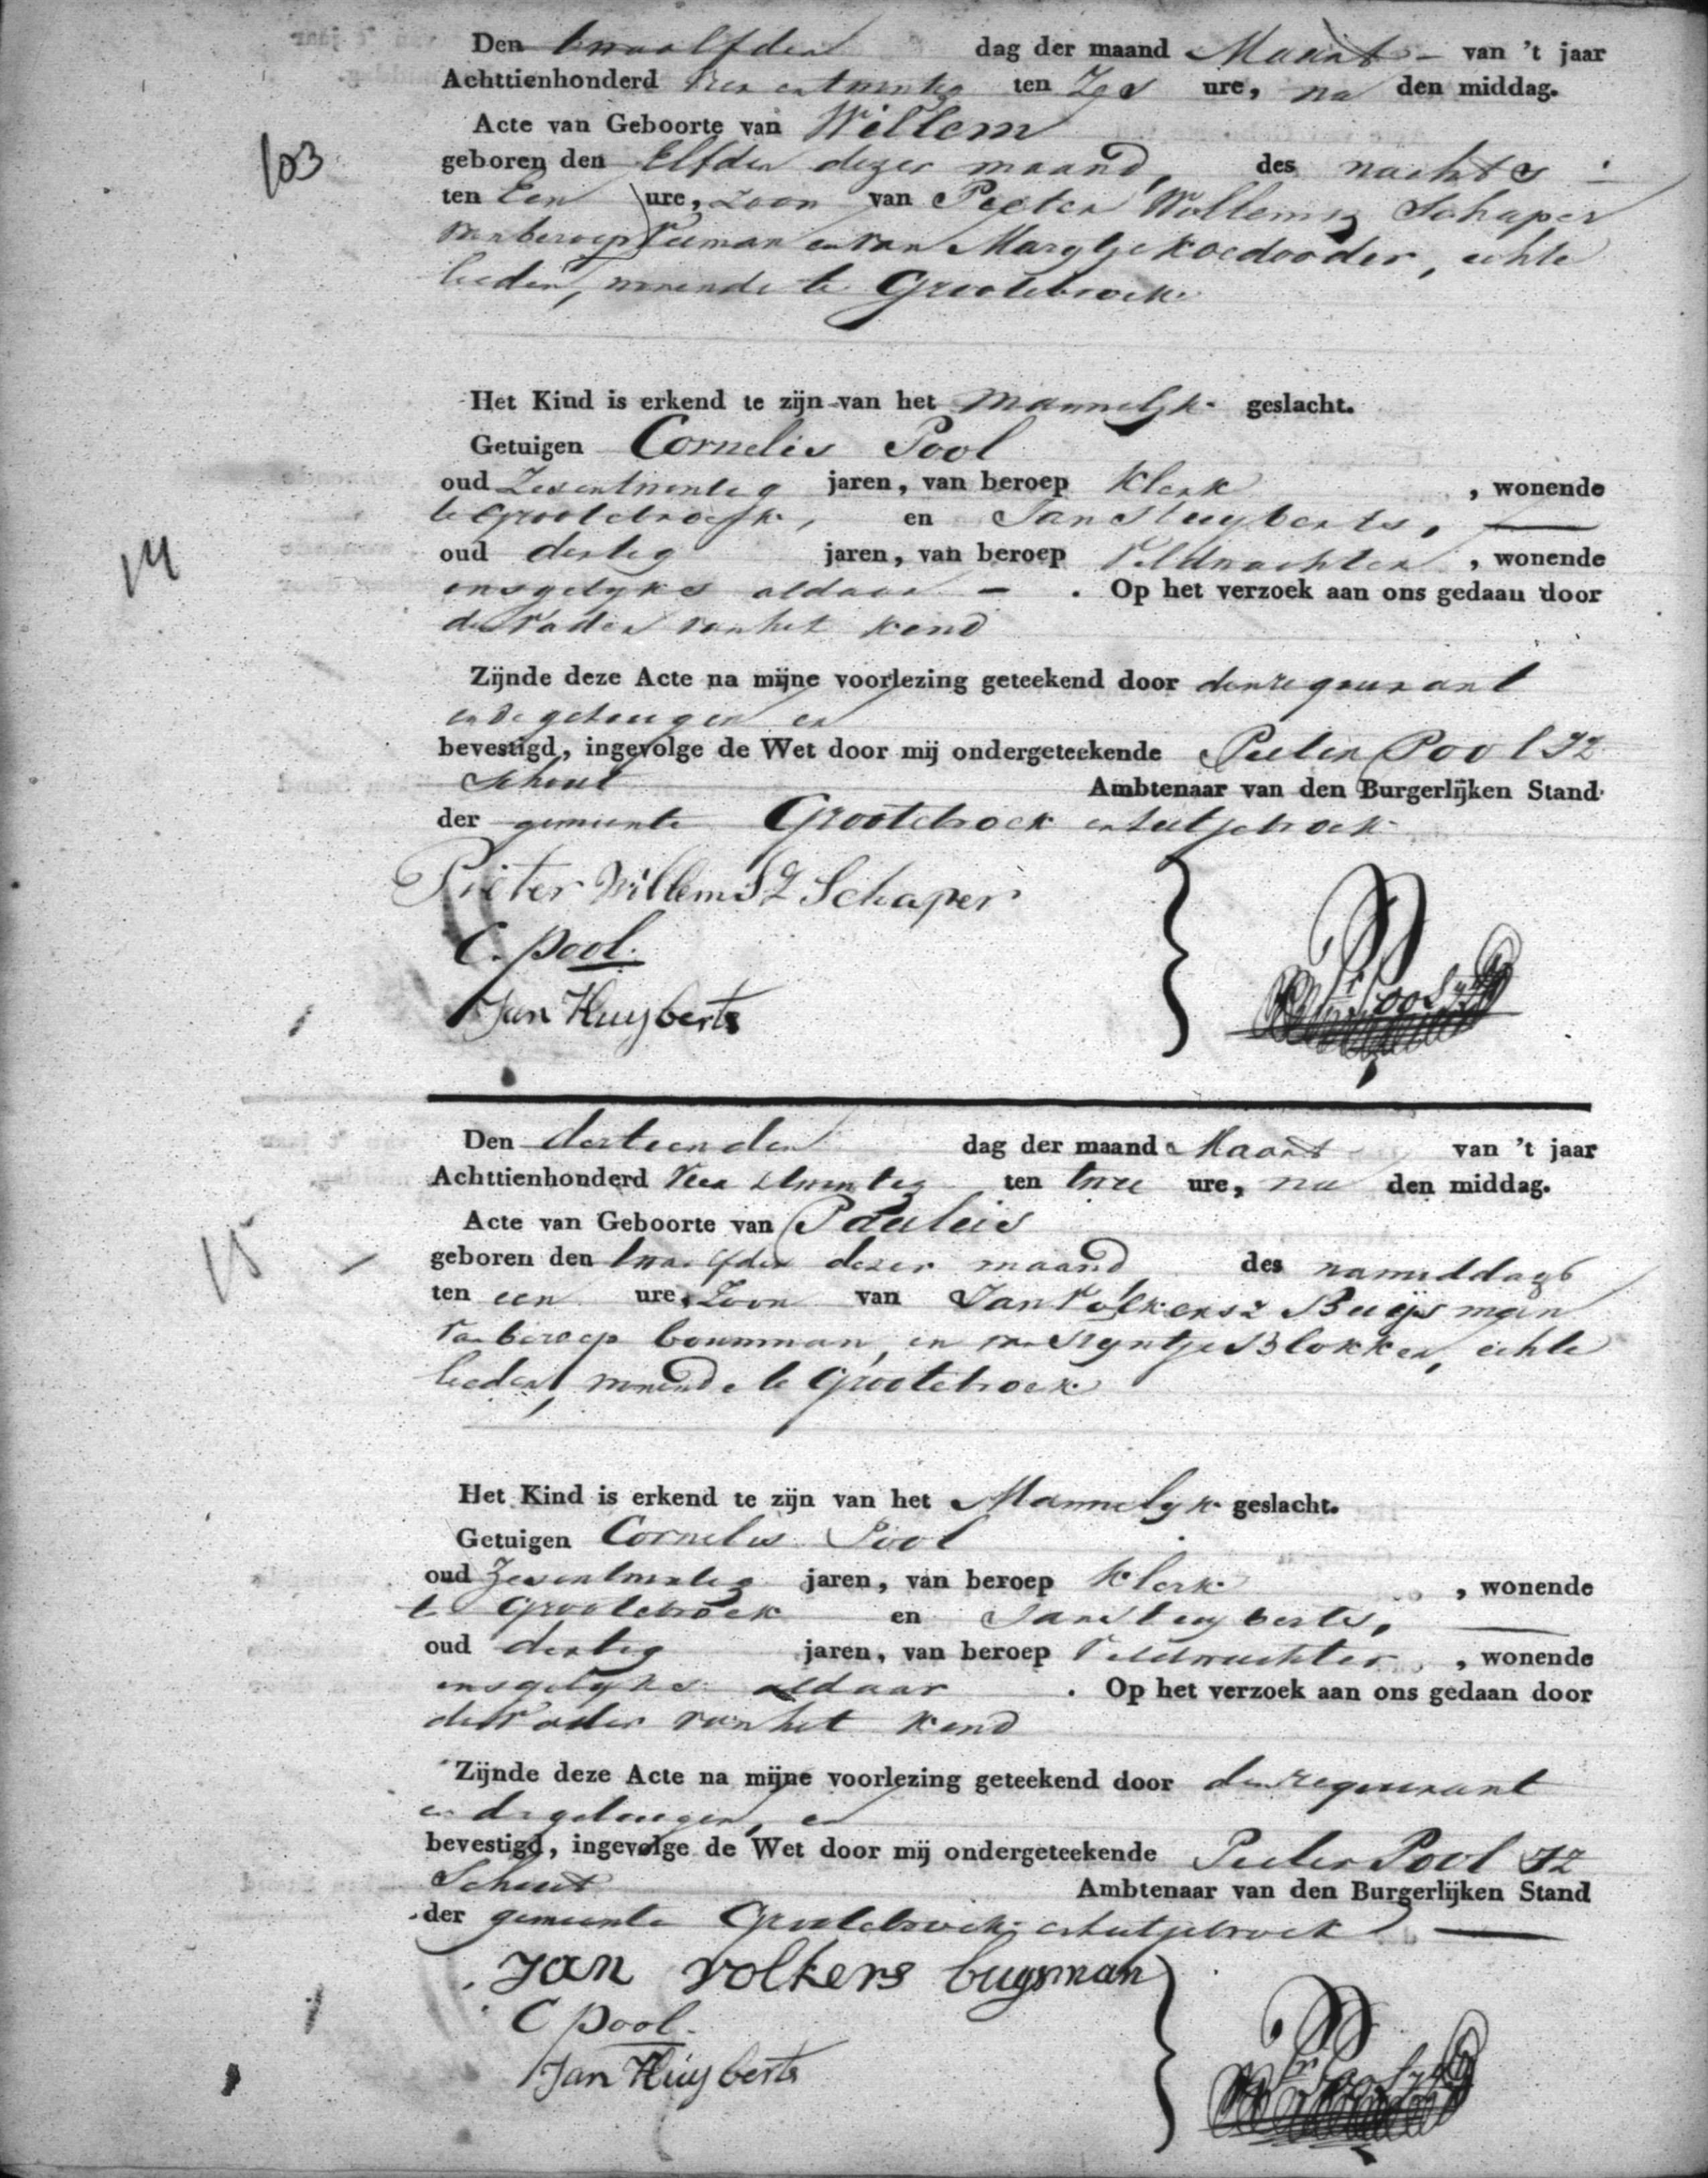 Den twaalfden dag der maand Maart - van 't jaar
Achttienhonderd vier entwintig ten Zes ure, na den middag.
Acte van Geboorte van Willem
103
geboren den Elfden dezer maand, des nachts
ten Een ure, zoon van Pieter Willemsz Schaper
van beroep veeman en van Margtje Koedooder, echte
lieden, wonende te Grootebroek
Het Kind is erkend te zijn van het Mannelyk geslacht.
Getuigen Cornelis Pool
oud Zesentwintig jaren, van beroep Klerk , wonende
te Grootebroek, en Jan Huyberts,
14
oud dertig jaren, van beroep Veldwachter , wonende
insgelyks aldaar - . Op het verzoek aan ons gedaan door
den Vader van het kind
Zijnde deze Acte na mijne voorlezing geteekend door den requirant
en de getuigen en
bevestigd, ingevolge de Wet door mij ondergeteekende Pieter Pool Jz
Schout Ambtenaar van den Burgerlijken Stand
der gemeente Grootebroek en Lutjebroek
Pieter Willemsz Schaper
C. Pool.
Jan Huyberts
Den dertienden dag der maand Maart van 't jaar
Achttienhonderd Vier entwintig ten twee ure, na den middag.
Acte van Geboorte van Paulus
15
geboren den twaalfden dezer maand des namiddags
ten een ure, Zoon van Jan Volkersz Buijsman
van beroep bouwman, en van Trijntje Blokker, echte
lieden, wonende te Grootebroek
Het Kind is erkend te zijn van het Mannelyk geslacht.
Getuigen Cornelis Pool
oud Zesentwintig jaren, van beroep Klerk , wonende
te Grootebroek en Jan Huyberts,
oud dertig jaren, van beroep Veldwachter , wonende
insgelyks aldaar . Op het verzoek aan ons gedaan door
den Vader van het kind
Zijnde deze Acte na mijne voorlezing geteekend door den requirant
en de getuigen, en
bevestigd, ingevolge de Wet door mij ondergeteekende Pieter Pool Jz
Schout Ambtenaar van den Burgerlijken Stand
der gemeente Grootebroek en Lutjebroek
Jan Volkers buysman
C Pool.
Jan Huyberts